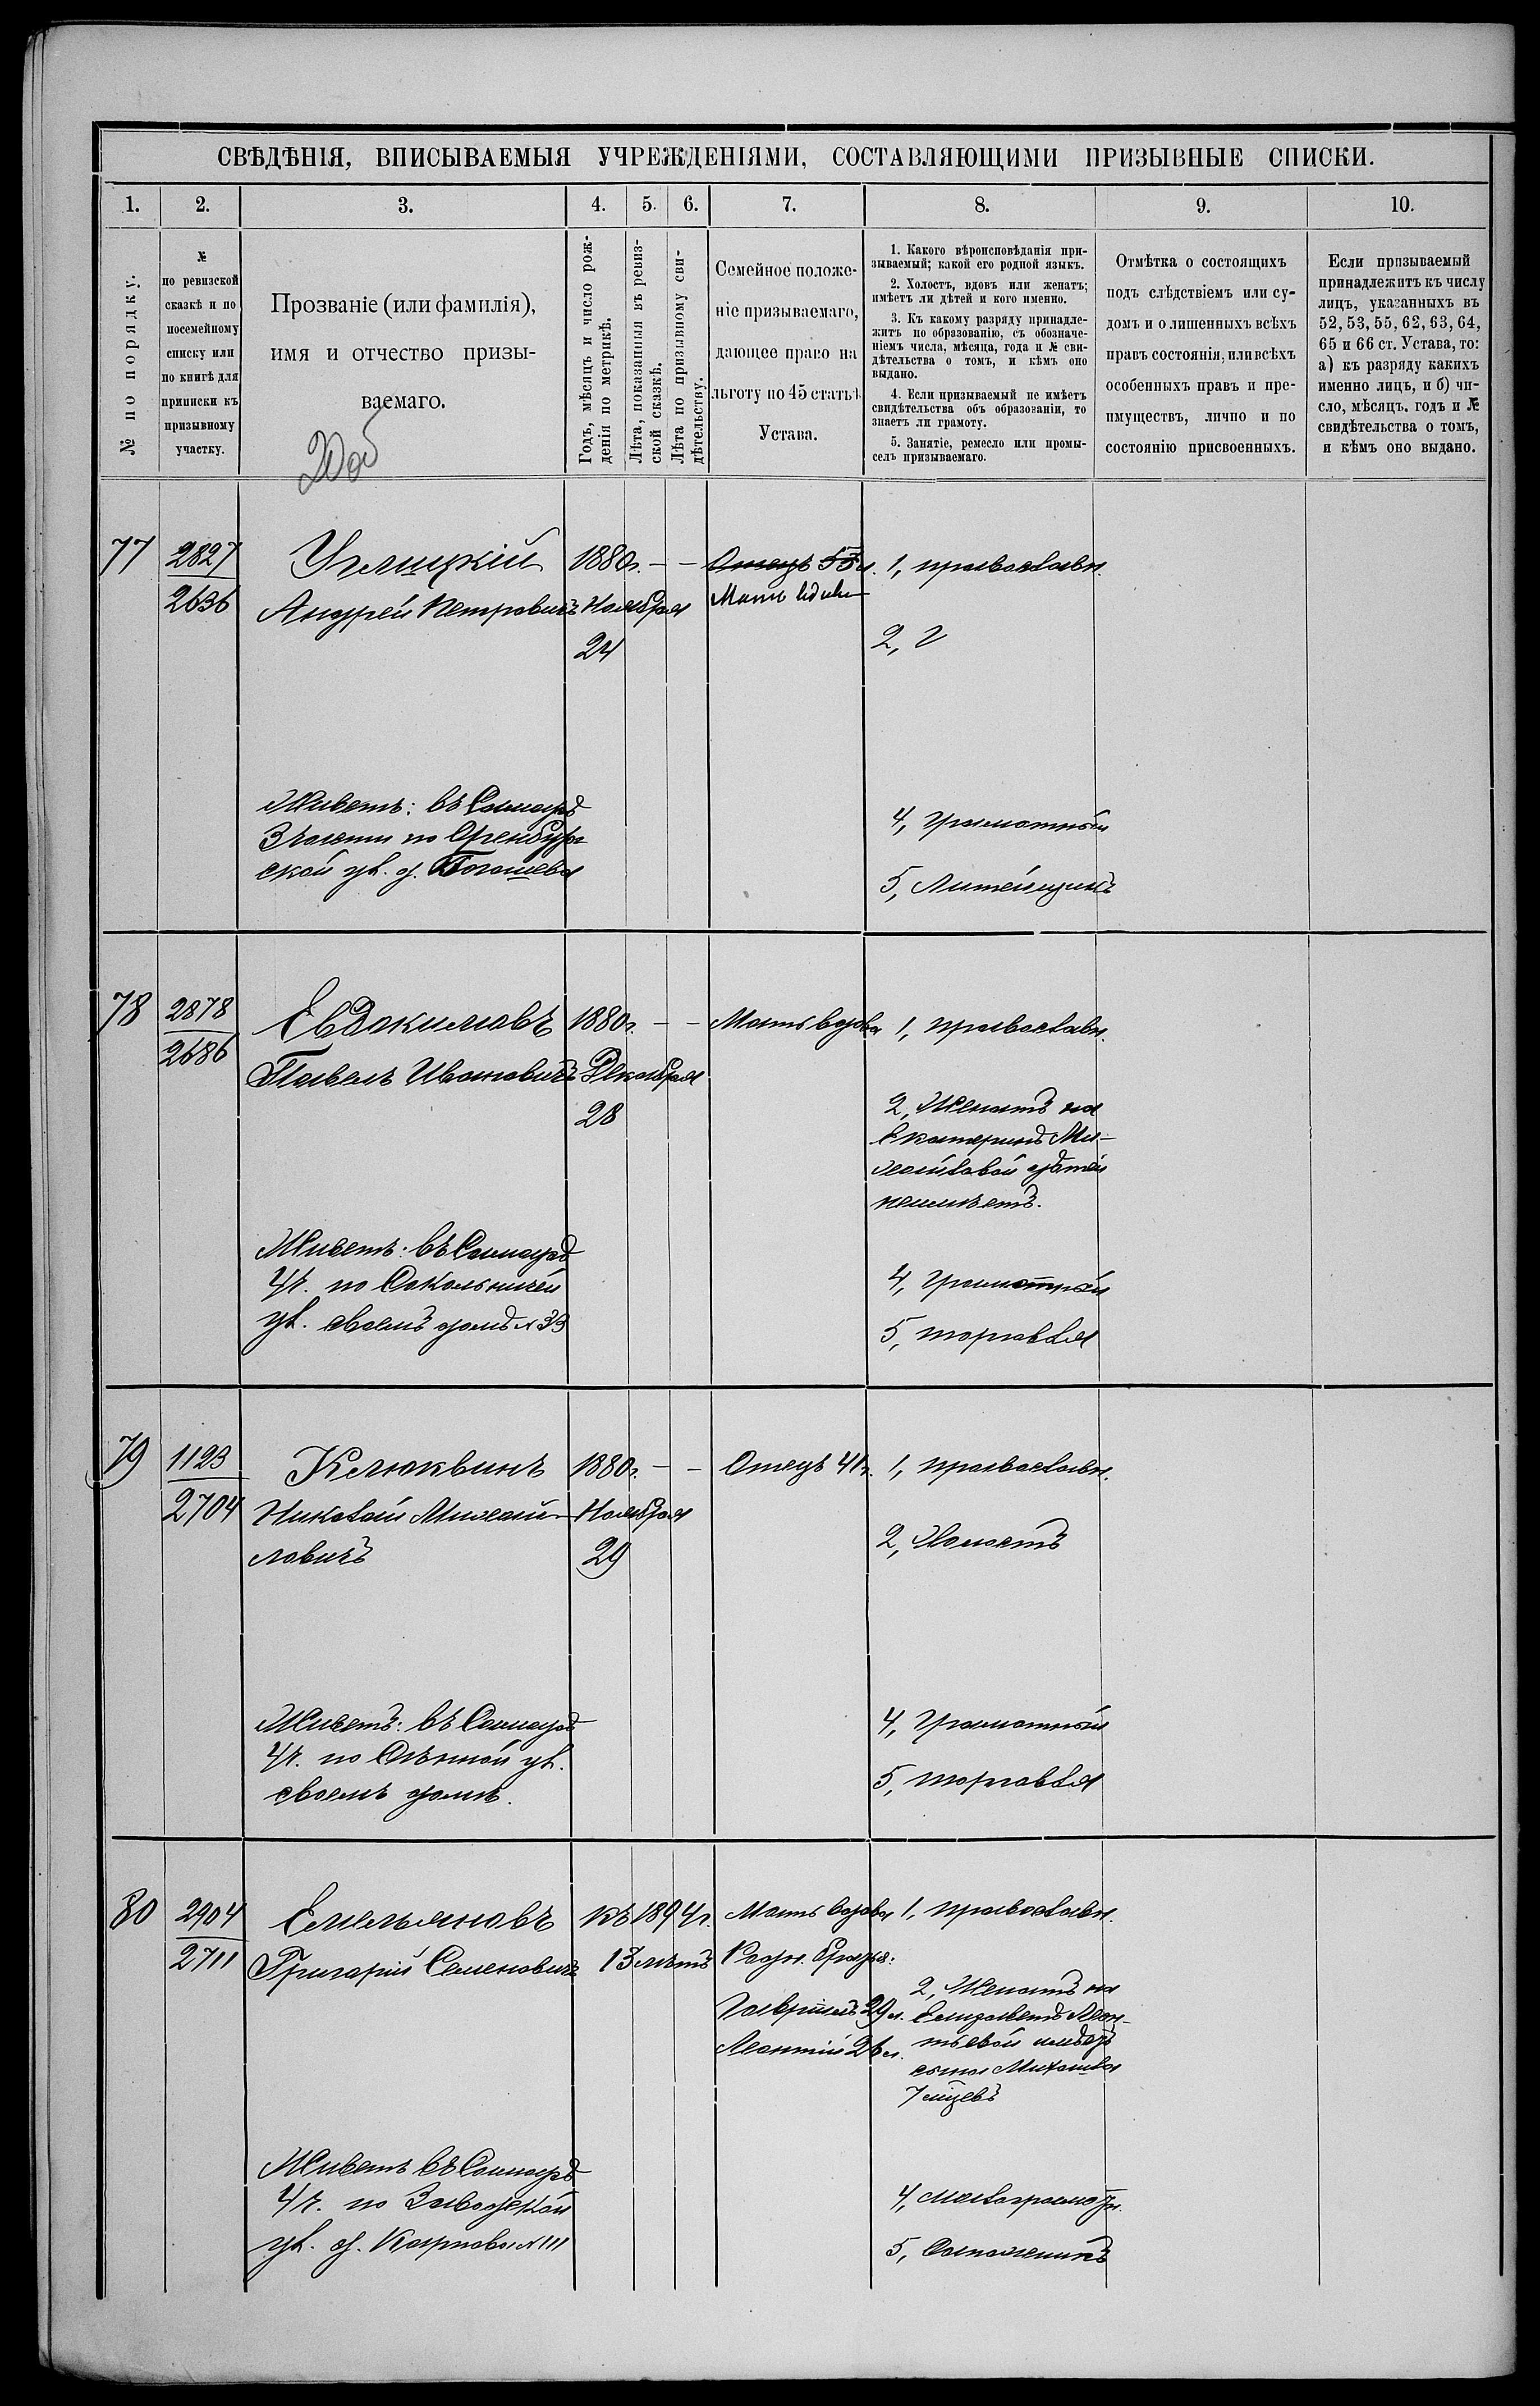 СВѢДѢНІЯ, ВПИСЫВАЕМЫЯ УЧРЕЖДЕНІЯМИ, СОСТАВЛЯЮЩИМИ ПРИЗЫВНЫЕ СПИСКИ.
1. 2. 3. 4. 5. 6. 7. 8. 9. 10.
№ по порядку.
№
по ревизской
сказкѣ и по
посемейному
списку или
по книгѣ для
приписки къ
призывному
участку.
Прозваніе (или фамилія),
имя и отчество призы-
ваемаго.
Годъ, мѣсяцъ и число рож-
денія по метрикѣ.
Лѣта, показанныя въ ревиз-
ской сказкѣ.
Лѣта по призывному сви-
дѣтельству.
Семейное положе-
ніе призываемаго,
дающее право на
льготу по 45 статьѣ
Устава.
1. Какого вѣроисповѣданія при-
зываемый; какой его родной языкъ.
2. Холостъ, вдовъ или женатъ;
имѣетъ ли дѣтей и кого именно.
3. Къ какому разряду принадле-
житъ по образованію, съ обозначе-
ніемъ числа, мѣсяца, года и № сви-
дѣтельства о томъ, и кѣмъ оно
выдано.
4. Если призываемый не имѣетъ
свидѣтельства объ образованіи, то
знаетъ ли грамоту.
5. Занятіе, ремесло или промы-
селъ призываемаго.
Отмѣтка о состоящихъ
подъ слѣдствіемъ или су-
домъ и о лишенныхъ всѣхъ
правъ состоянія, или всѣхъ
особенныхъ правъ и пре-
имуществъ, лично и по
состоянію присвоенныхъ.
Если призываемый
принадлежитъ къ числу
лицъ, указанныхъ въ
52, 53, 55, 62, 63, 64,
65 и 66 ст. Устава, то:
а) къ разряду какихъ
именно лицъ, и б) чи-
сло, мѣсяцъ. годъ и №
свидѣтельства о томъ,
и кѣмъ оно выдано.
77 2827 Углицкій 1880г. – – Отецъ 53 л. 1, православн.
2636 Андрей Петровичъ Ноября Мать вдова
24 2,
Живетъ: въ Самарѣ
3 части по Оренбург
ской ул. д.
4, грамотный
5, Литейщикъ
78 2878 Евдокимовъ 1880г. – – Мать вдова 1, православн.
2686 Павелъ Ивановичъ Декабря
28
2, Женатъ на
Екатеринѣ Ми-
хайловой дѣтей
неимѣетъ.
Живетъ: въ Самарѣ
4ч. по Сокольничей
ул. своемъ домѣ № 33
4, грамотный
5, торговля
79 1123 Клюквинъ 1880г. – – Отецъ 41г. 1, православн.
2704 Николай Михай- Ноября
ловичъ 29
2, Холостъ
Живетъ: въ Самарѣ
4ч. по Сѣнной ул.
своемъ домѣ.
4, грамотный
5, торговля
80 2904 Емельяновъ къ 1894г. Мать вдова 1, православн.
2711 Григорій Семеновичъ 13 лѣтъ Родн. братья:
Гавріилъ 29 л.
Леонтій 26 л.
2, Женатъ на
Елизаветѣ Леон-
тьевой имѣетъ
сына Михаила
7 мцевъ
Живетъ въ Самарѣ
4ч. по Заводской
ул. д. Карпова № 111
4, малограмотн.
5, Сапожникъ